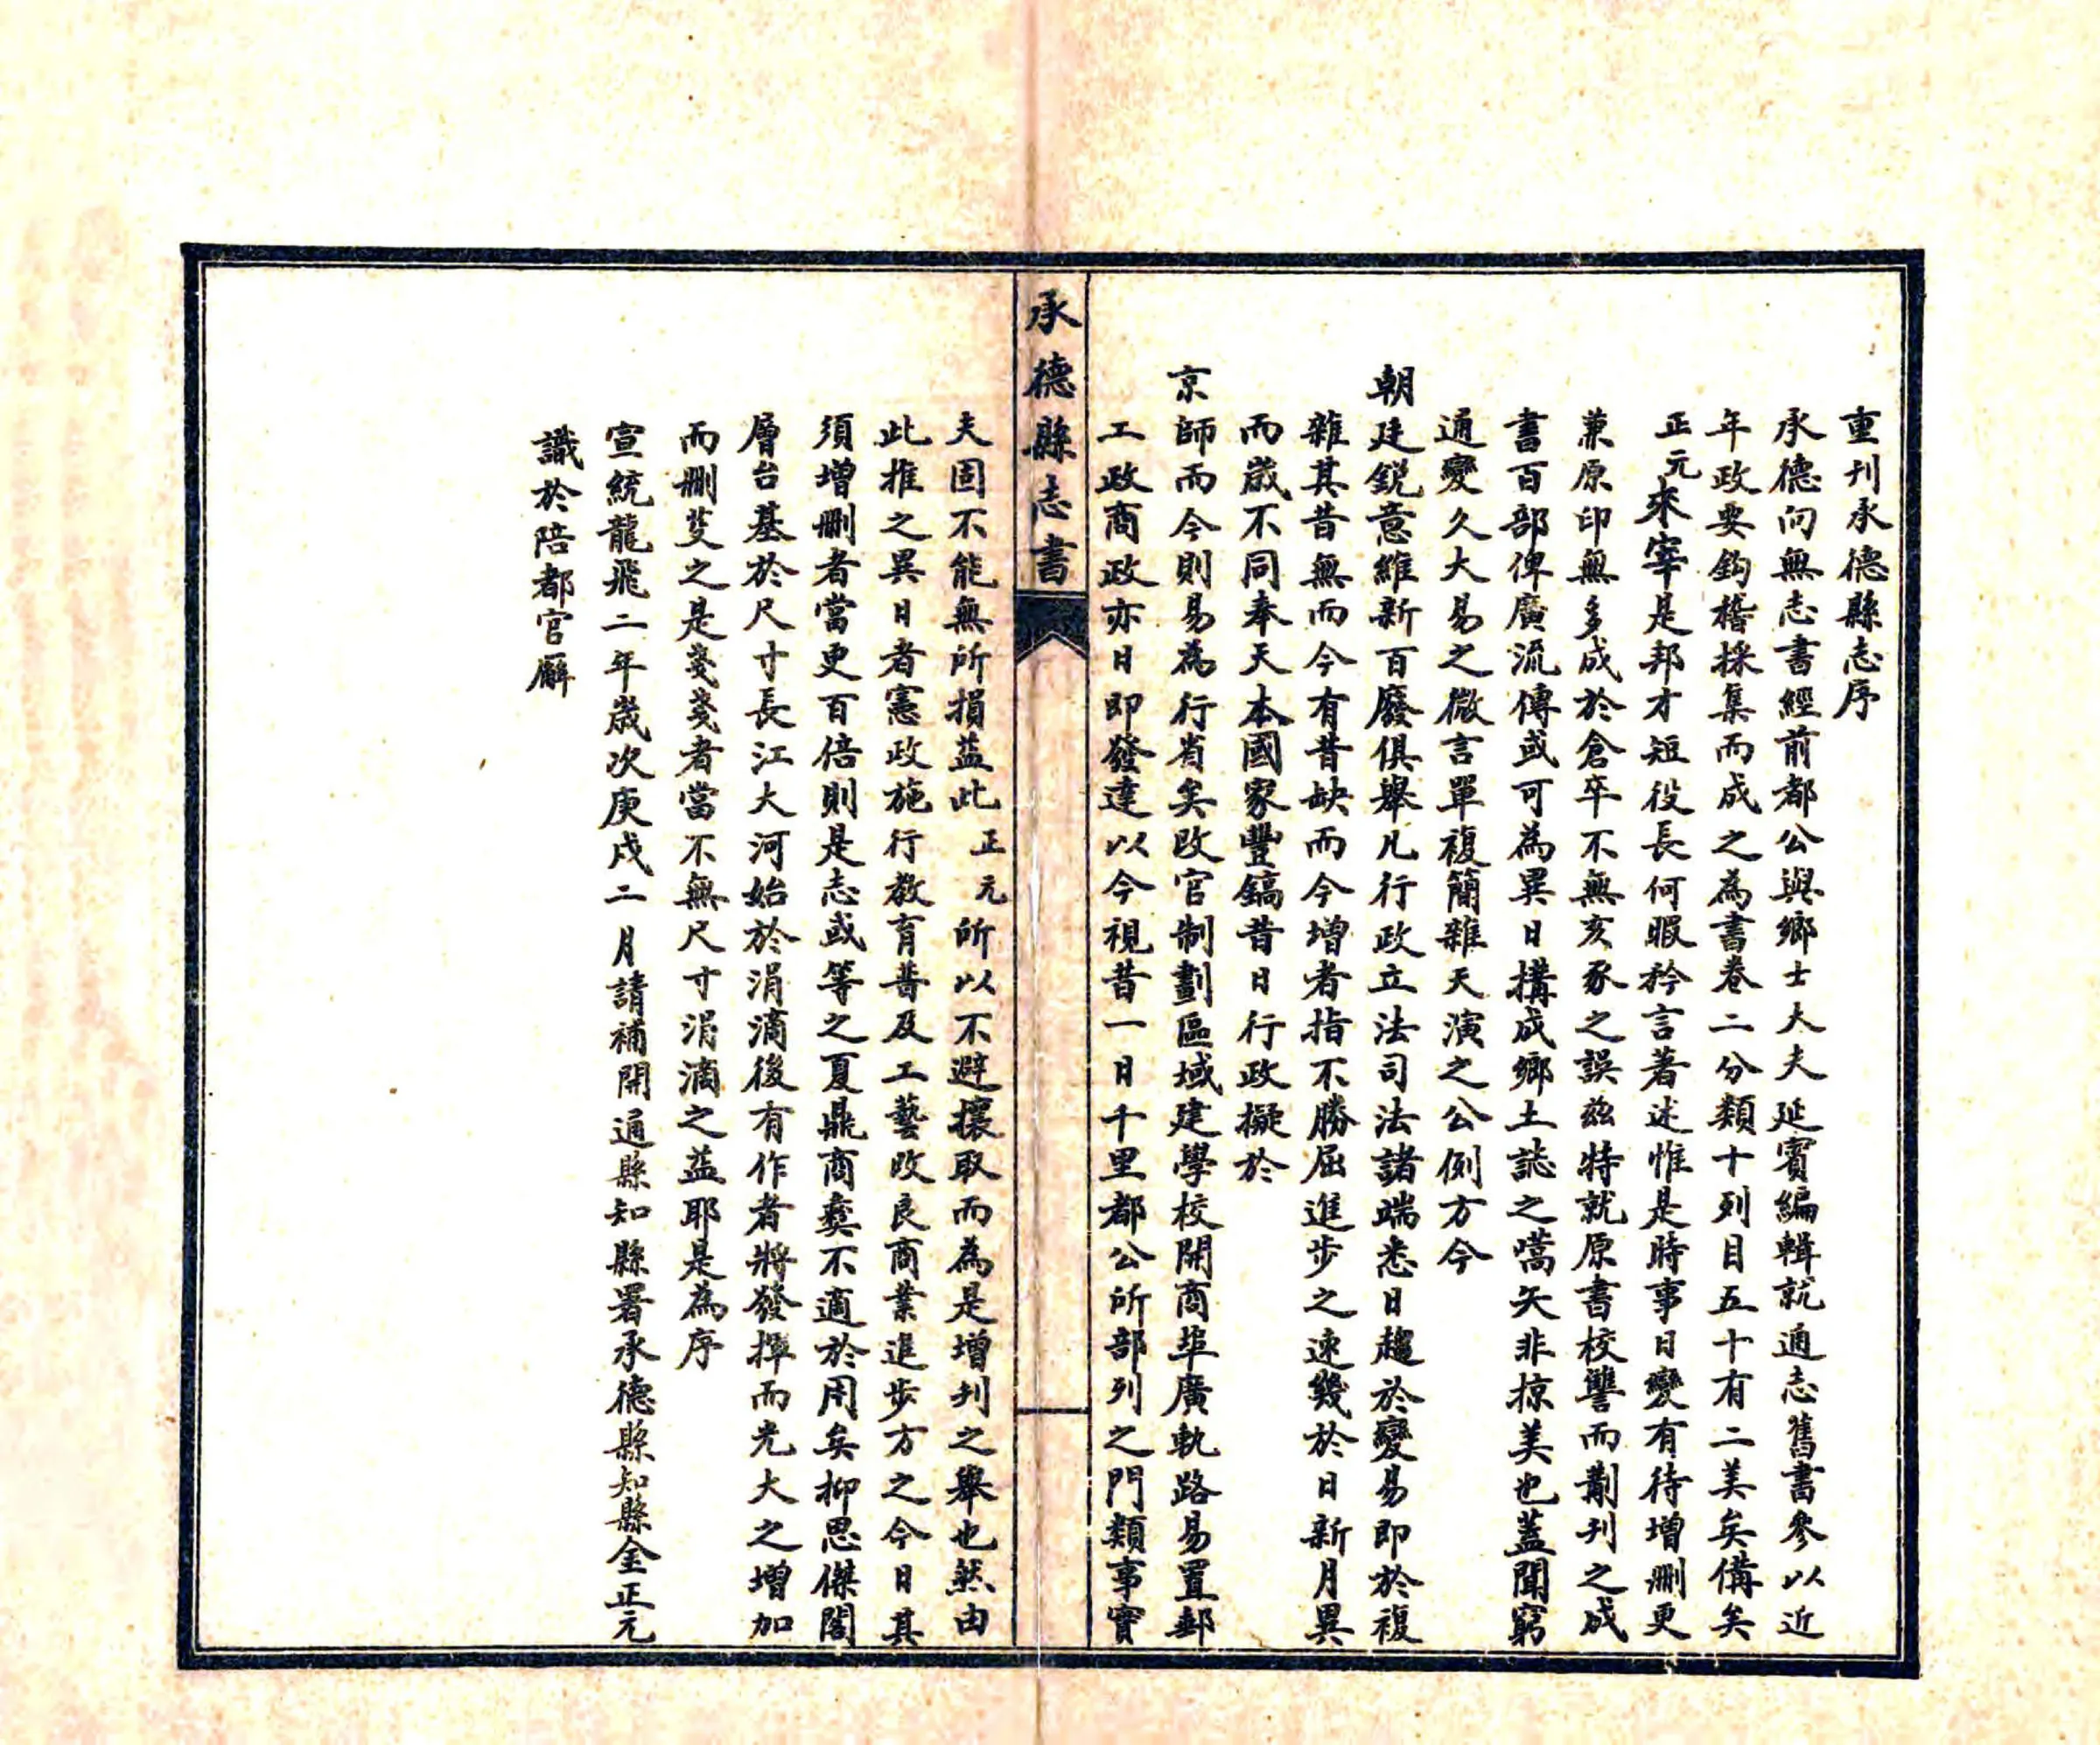 重刊承德縣志序
承德向無志書經前都公與鄉士大夫延賓編輯就通志舊書參以近
年政要鈎稽採集而成之為書卷二分類十列目五十有二美矣備矣
正元來宰是邦才短役長何暇矜言著述惟是時事日變有待增刪更
兼原印無多成於倉卒不無亥豕之誤茲特就原書校讐而剞刊之成
書百部俾廣流傳或可為異日搆成鄉土誌之嚆矢非掠美也蓋聞窮
通變久大易之微言單複簡雜天演之公例方今
朝廷銳意維新百廢俱舉凡行政立法司法諸端悉日趨於變易即於複
雜其昔無而今有昔缺而今增者指不勝屈進步之速幾於日新月異
而歲不同奉天本國家豐鎬昔日行政擬於
京師而今則易為行省矣改官制劃區域建學校開商埠廣軌路易置郵
工政商政亦日即發達以今視昔一日千里都公所部列之門類事實
承德縣志書
夫固不能無所損益此正元所以不避攘取而為是增刊之舉也然由
此推之異日者憲政施行教育普及工藝改良商業進步方之今日其
須增刪者當更百倍則是志或等之夏鼎商彝不適於用矣抑思傑閣
層台基於尺寸長江大河始於涓滴後有作者將發揮而光大之增加
而刪芟之是戔戔者當不無尺寸涓滴之益耶是為序
宣統龍飛二年歲次庚戌二月請補開通縣知縣署承德縣知縣金正元
識於陪都官廨